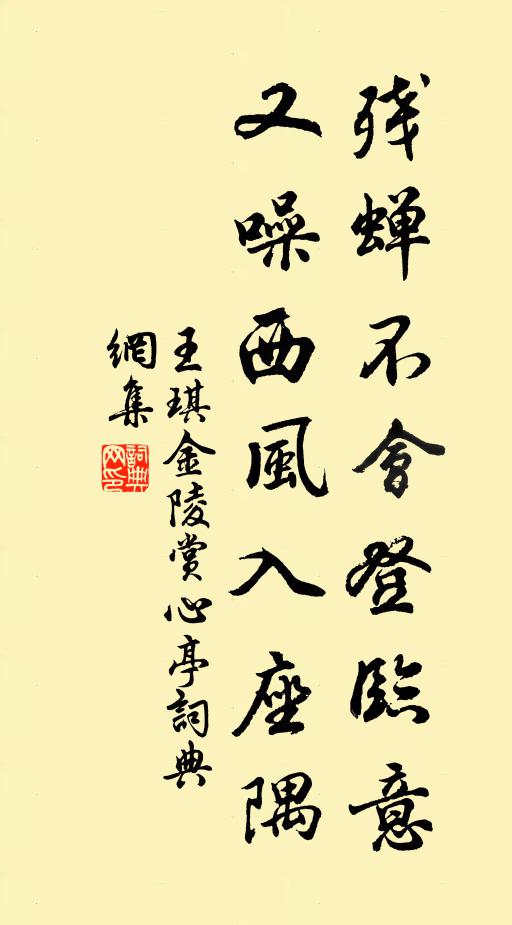 残蝉不會登臨意
又噪西風入座隅
王琪金陵賞心亭詞典
網集
詞典網印